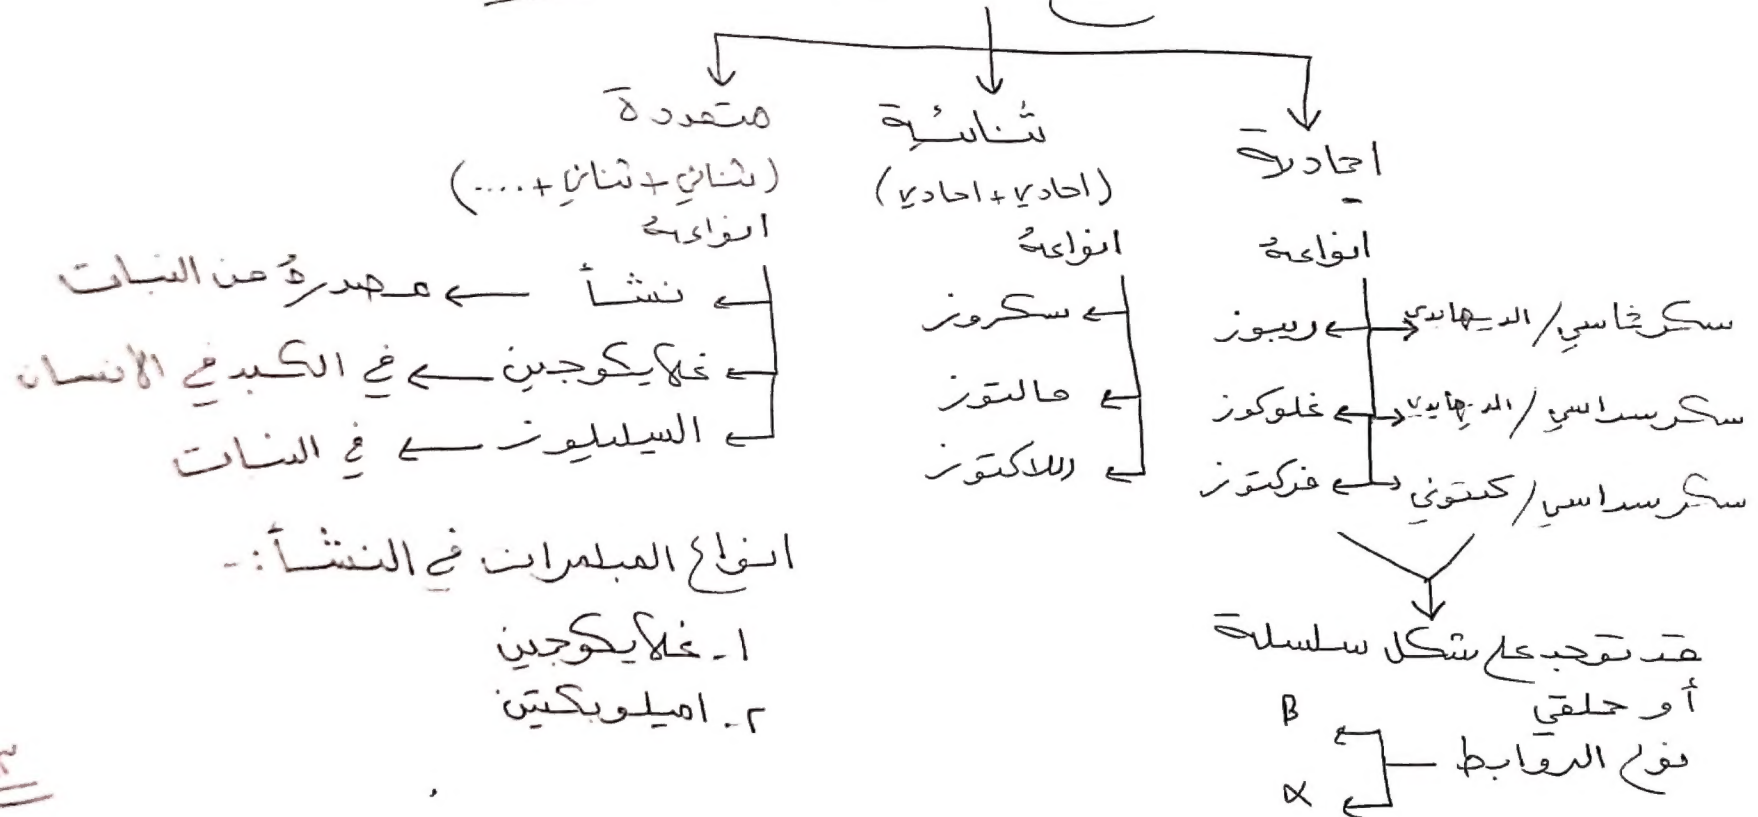 احادية
انواعهُ
سكر خماسي / الديهايدي ← ريبوز
سكر سداسي / الديهايدي ← غلوكوز
سكر سداسي / كيتوني ← فركتوز
قد توجد على شكل سلسلة
أو حلقي
نوع الروابط
β
α
ثنائية
(احادي + احادي)
انواعهُ
سكروز
مالتوز
اللاكتوز
متعددة
(ثنائي + ثنائي + ....)
انواعهُ
نشأ ← مصدرهُ من النبات
غلايكوجين ← في الكبد في الانسان
السيليلوز ← في النبات
انواع المبلمرات في النشأ :-
١- غلايكوجين
٢- اميلوبكتين
٣